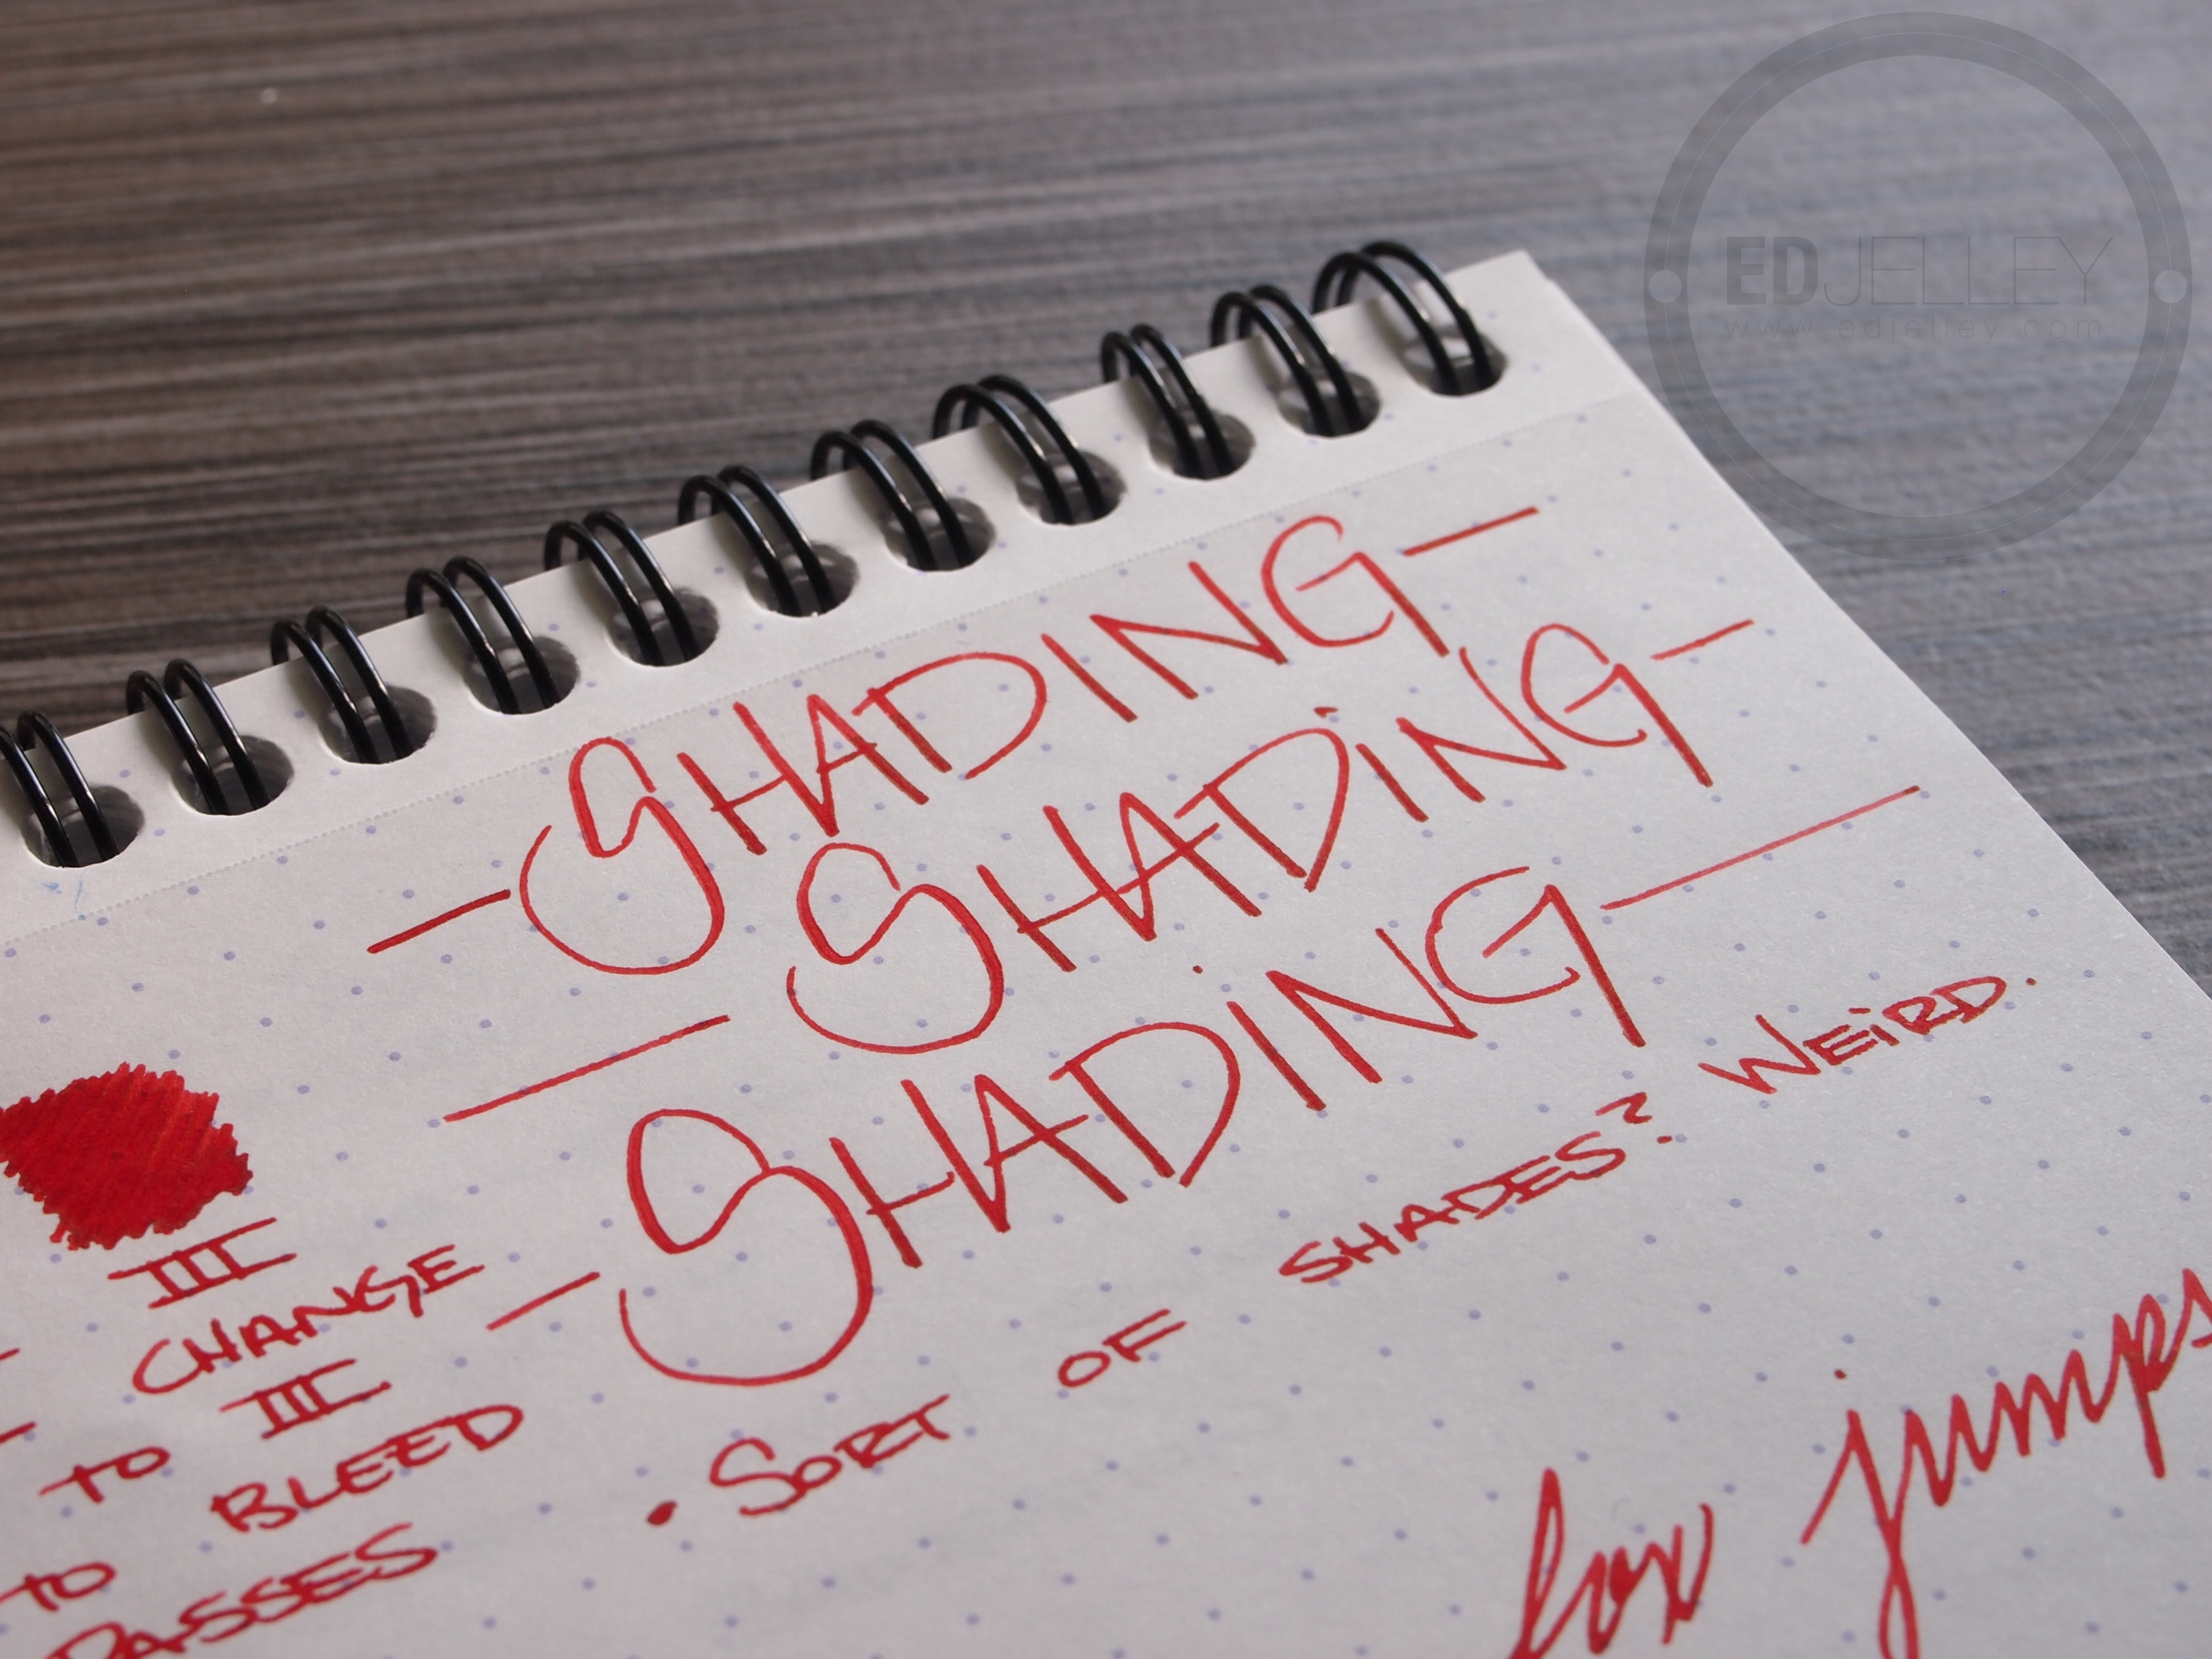 EDJELLEY
www.edjelley.com
-SHADING-
-SHADiNG-
-SHADiNG-
III
CHANGE
TO III
BLEED
TO PASSES
• SORT OF SHADES? WEiRD.
fox jumps